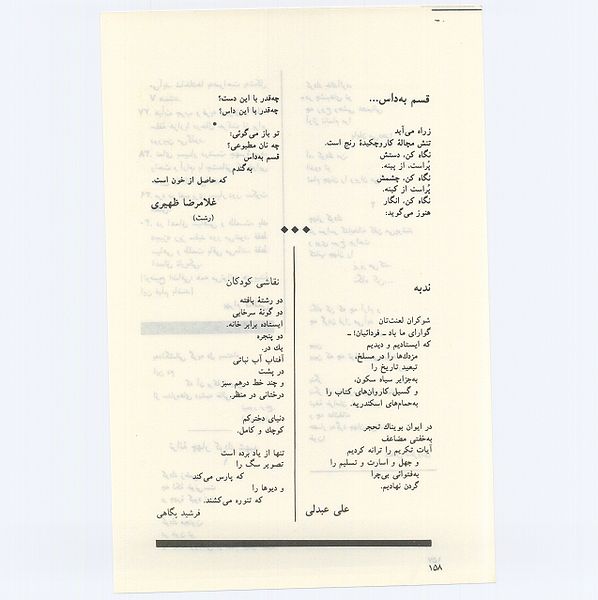 قسم به‌داس...
ز راه می‌آید
تنش مچالهٔ کار و چکیدهٔ رنج است.
نگاه کن، دستش
پُر است، از پینه.
نگاه کن، چشمش
پُر است از کینه.
نگاه کن، انگار
هنوز می‌گوید:
چه‌قدر با این دست؟
چه‌قدر با این داس؟
•
تو باز می‌گوئی:
چه نان مطبوعی؟
قسم به‌داس
به‌گندم
که حاصل از خون است.
غلامرضا ظهیری
(رشت)
ندبه
شوکران لعنت‌تان
گوارای ما باد ـ فردائیان! ـ
که ایستادیم و دیدیم
مزدك‌ها را در مسلخ،
تبعید تاریخ را
به‌جزایر سیاه سکون،
و گسیل کاروان‌های کتاب را
به‌حمام‌های اسکندریه.
در ایوان بویناك تحجر
به‌خفتی مضاعف
آیات تکریم را ترانه کردیم
و جهل و اسارت و تسلیم را
به‌فتوائی بی‌چرا
گردن نهادیم.
علی عبدلی
نقاشی کودکان
دو رشتهٔ بافته
دو گونهٔ سرخابی
ایستاده برابر خانه.
دو پنجره
یك در.
آفتاب آب نباتی
در پشت
و چند خط درهم سبز
درختانی در منظر.
دنیای دخترکم
کوچك و کامل.
تنها از یاد برده است
تصویر سگ را
که پارس می‌کند
و دیوها را
که تنوره می‌کشند.
فرشید پگاهی
۱۵۸